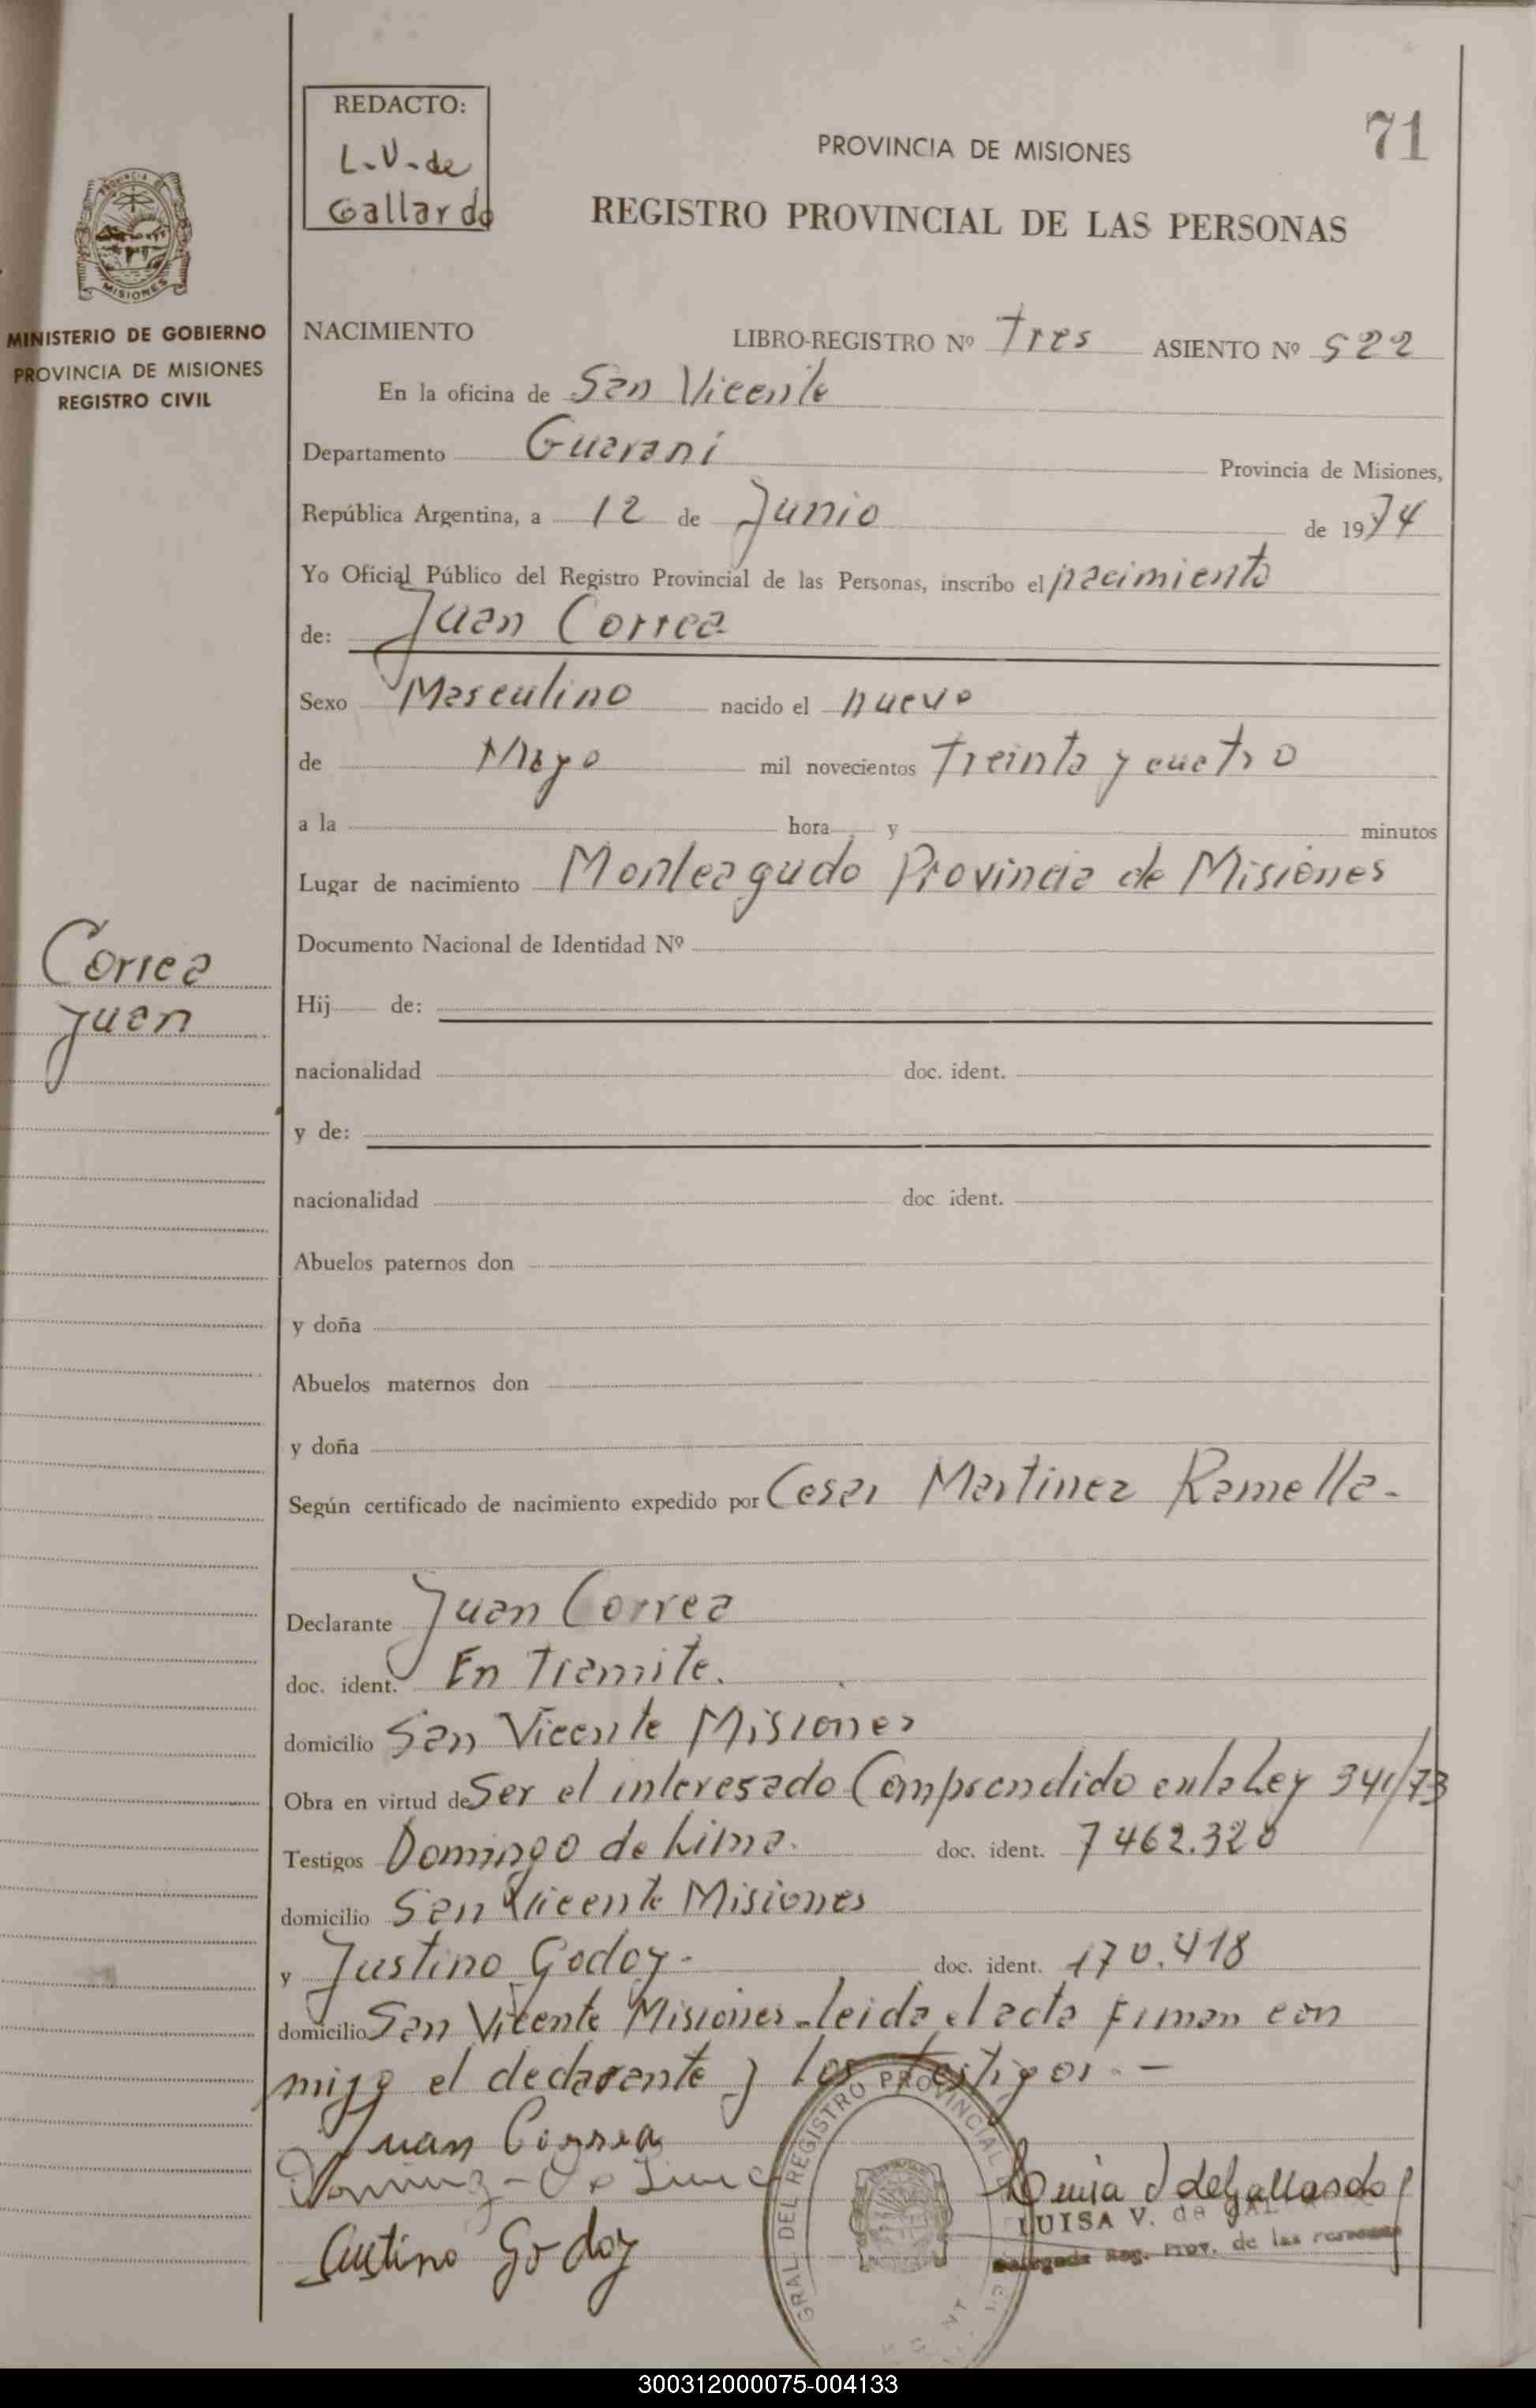 REDACTO:
L.V. de
Gallardo
71
PROVINCIA DE MISIONES
REGISTRO PROVINCIAL DE LAS PERSONAS
PROVINCIA DE
MISIONES
MINISTERIO DE GOBIERNO
PROVINCIA DE MISIONES
REGISTRO CIVIL
NACIMIENTO LIBRO-REGISTRO Nº Tres ASIENTO Nº 522
En la oficina de San Vicente
Departamento Guarani Provincia de Misiones,
República Argentina, a 12 de Junio de 1974
Yo Oficial Público del Registro Provincial de las Personas, inscribo el nacimiento
de: Juan Correa
Sexo Masculino nacido el nueve
de Mayo mil novecientos Treinta y cuatro
a la hora y minutos
Lugar de nacimiento Monteagudo Provincia de Misiones
Documento Nacional de Identidad Nº
Correa
Juan
Hij de:
nacionalidad doc. ident.
y de:
nacionalidad doc ident.
Abuelos paternos don
y doña
Abuelos maternos don
y doña
Según certificado de nacimiento expedido por Cesar Martinez Ramella-
Declarante Juan Correa
doc. ident. En Tramite.
domicilio San Vicente Misiones
Obra en virtud de Ser el interesado Comprendido en la Ley 341/73
Testigos Domingo de Lima. doc. ident. 7462.320
domicilio San Vicente Misiones
y Justino Godoy- doc. ident. 170.418
domicilio San Vicente Misiones-leida el acta firman con
migo el declarante y los testigos.-
Juan Correa
Justino Godoy
GRAL DEL REGISTRO PROVINCIAL
Luisa V deGallardo
LUISA V. de GAL
Delegada Reg. Prov. de las Personas
300312000075-004133